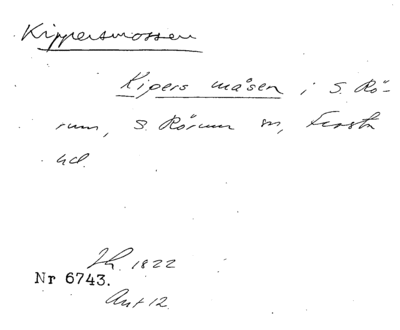 Kippersmossen
Kipers måsen i S. Rö-
rum, S. Rörum sn, Frosta
hd.
Jh. 1822
Nr 6743.
Ant 12.